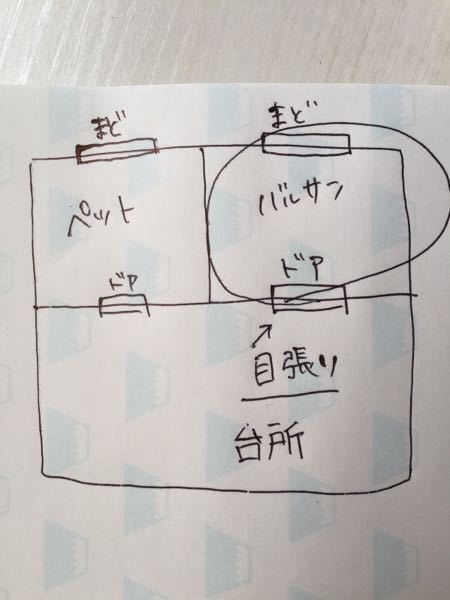 まど
まど
ペット
バルサン
ドア
ドア
目張り
台所